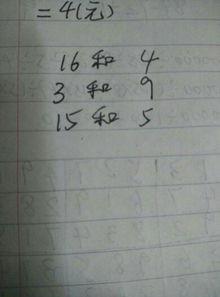 =4(元)
16和4
3和9
15和5